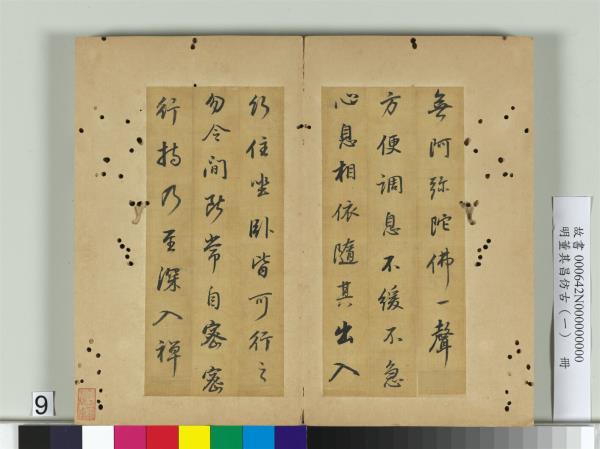 無阿彌陀佛一聲
方便調息不緩不急
心息相依隨其出入
行住坐臥皆可行之
勿令間斷常自密密
行持乃至深入禪
故書 000642N000000000
明董其昌仿古（一） 冊
9